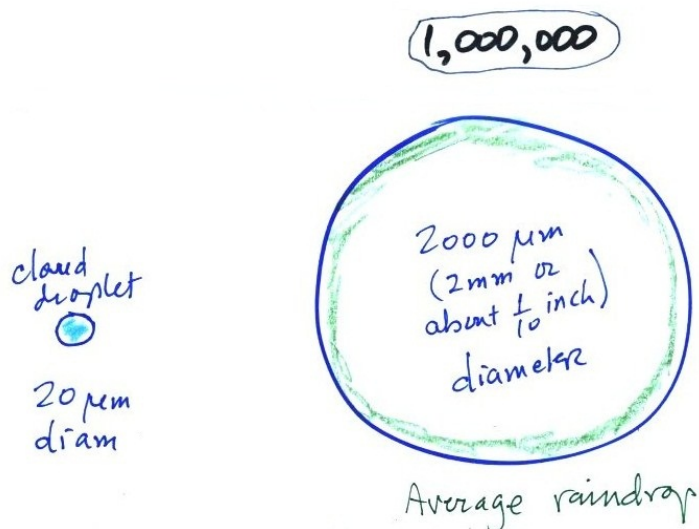 1,000,000
cloud
droplet
20 μm
diam
2000 μm
(2mm or
about 1/10 inch)
diameter
Average raindrop